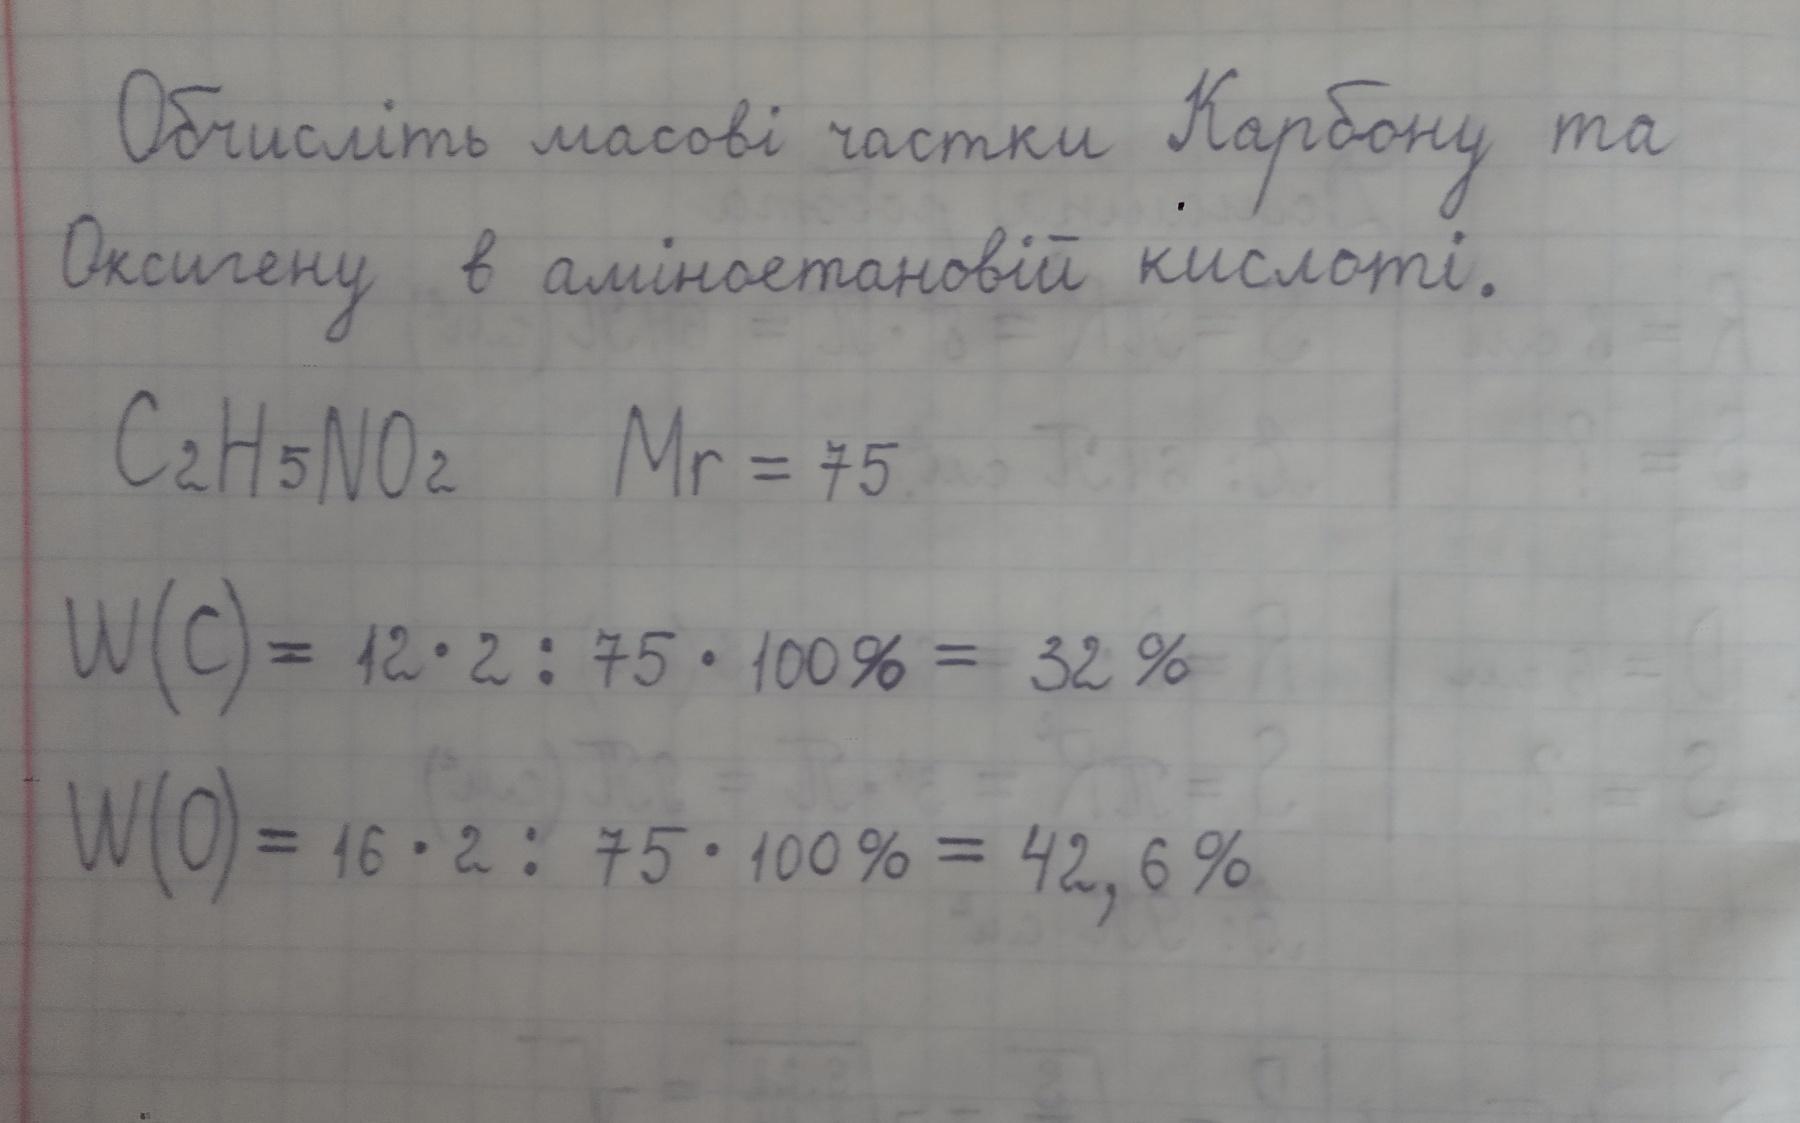 Обчисліть масові частки Карбону та
Оксигену в аміноетановій кислоті.
C₂H₅NO₂ Mr = 75
W(C) = 12 · 2 : 75 · 100% = 32 %
W(O) = 16 · 2 : 75 · 100% = 42,6 %